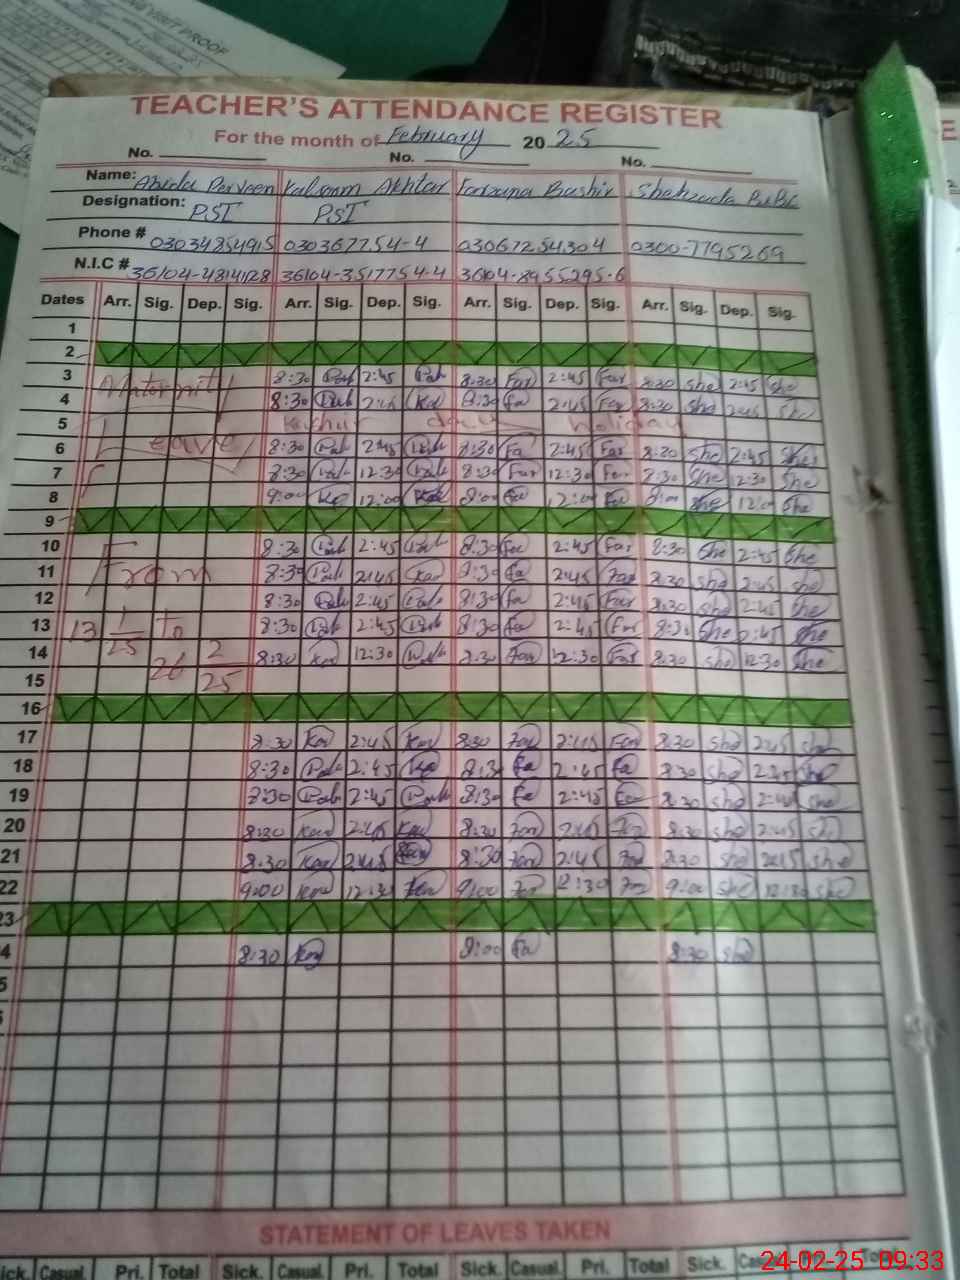 VISIT PROOF
TEACHER'S ATTENDANCE REGISTER
For the month of February 20 25
No. No. No.
Name: Abida Parveen Kalsoom Akhtar Farzana Bashir Shahzada BiBi
Designation: PST PST
Phone # 03034854915 030367754-4 03067254304 0300-7795269
N.I.C # 36104-4814128 36104-3517754-4 36104-8955295-6
Dates Arr. Sig. Dep. Sig. Arr. Sig. Dep. Sig. Arr. Sig. Dep. Sig. Arr. Sig. Dep. Sig.
1
2
3 Maternity 8:30 2:45 8:30 Far 2:45 Far 8:30 She 2:45 She
4 8:30 2:45 8:30 Fa 2:45 Far 8:30 She 2:45 She
5 Leave Kashur day holiday
6 8:30 2:45 8:30 Fa 2:45 Far 8:30 She 2:45 She
7 8:30 12:30 8:30 Far 12:30 Far 8:30 She 12:30 She
8 9:00 12:00 9:00 Fa 12:00 Fa 9:00 She 12:00 She
9
10 8:30 2:45 8:30 Fa 2:45 Far 8:30 She 2:45 She
11 From 8:30 2:45 8:30 Fa 2:45 Far 8:30 She 2:45 She
12 8:30 2:45 8:30 Fa 2:45 Far 8:30 She 2:45 She
13 13 1/25 To 8:30 2:45 8:30 Fa 2:45 Far 8:30 She 2:45 She
14 26 2/25 8:30 12:30 8:30 Far 12:30 Far 8:30 She 12:30 She
15
16
17 8:30 2:45 8:30 Far 2:45 Far 8:30 She 2:45 She
18 8:30 2:45 8:30 Fa 2:45 Fa 8:30 She 2:45 She
19 8:30 2:45 8:30 Fa 2:45 Far 8:30 She 2:45 She
20 8:30 2:45 8:30 Far 2:45 Far 8:30 She 2:45 She
21 8:30 2:45 8:30 Far 2:45 Far 8:30 She 2:45 She
22 9:00 12:30 9:00 Far 12:30 Far 9:00 She 12:30 She
23
4 8:30 9:00 Fa 8:30 She
5
STATEMENT OF LEAVES TAKEN
Sick. Casual. Pri. Total Sick. Casual. Pri. Total Sick. Casual. Pri. Total Sick. Casual Pri. Total
24-02-25 09:33